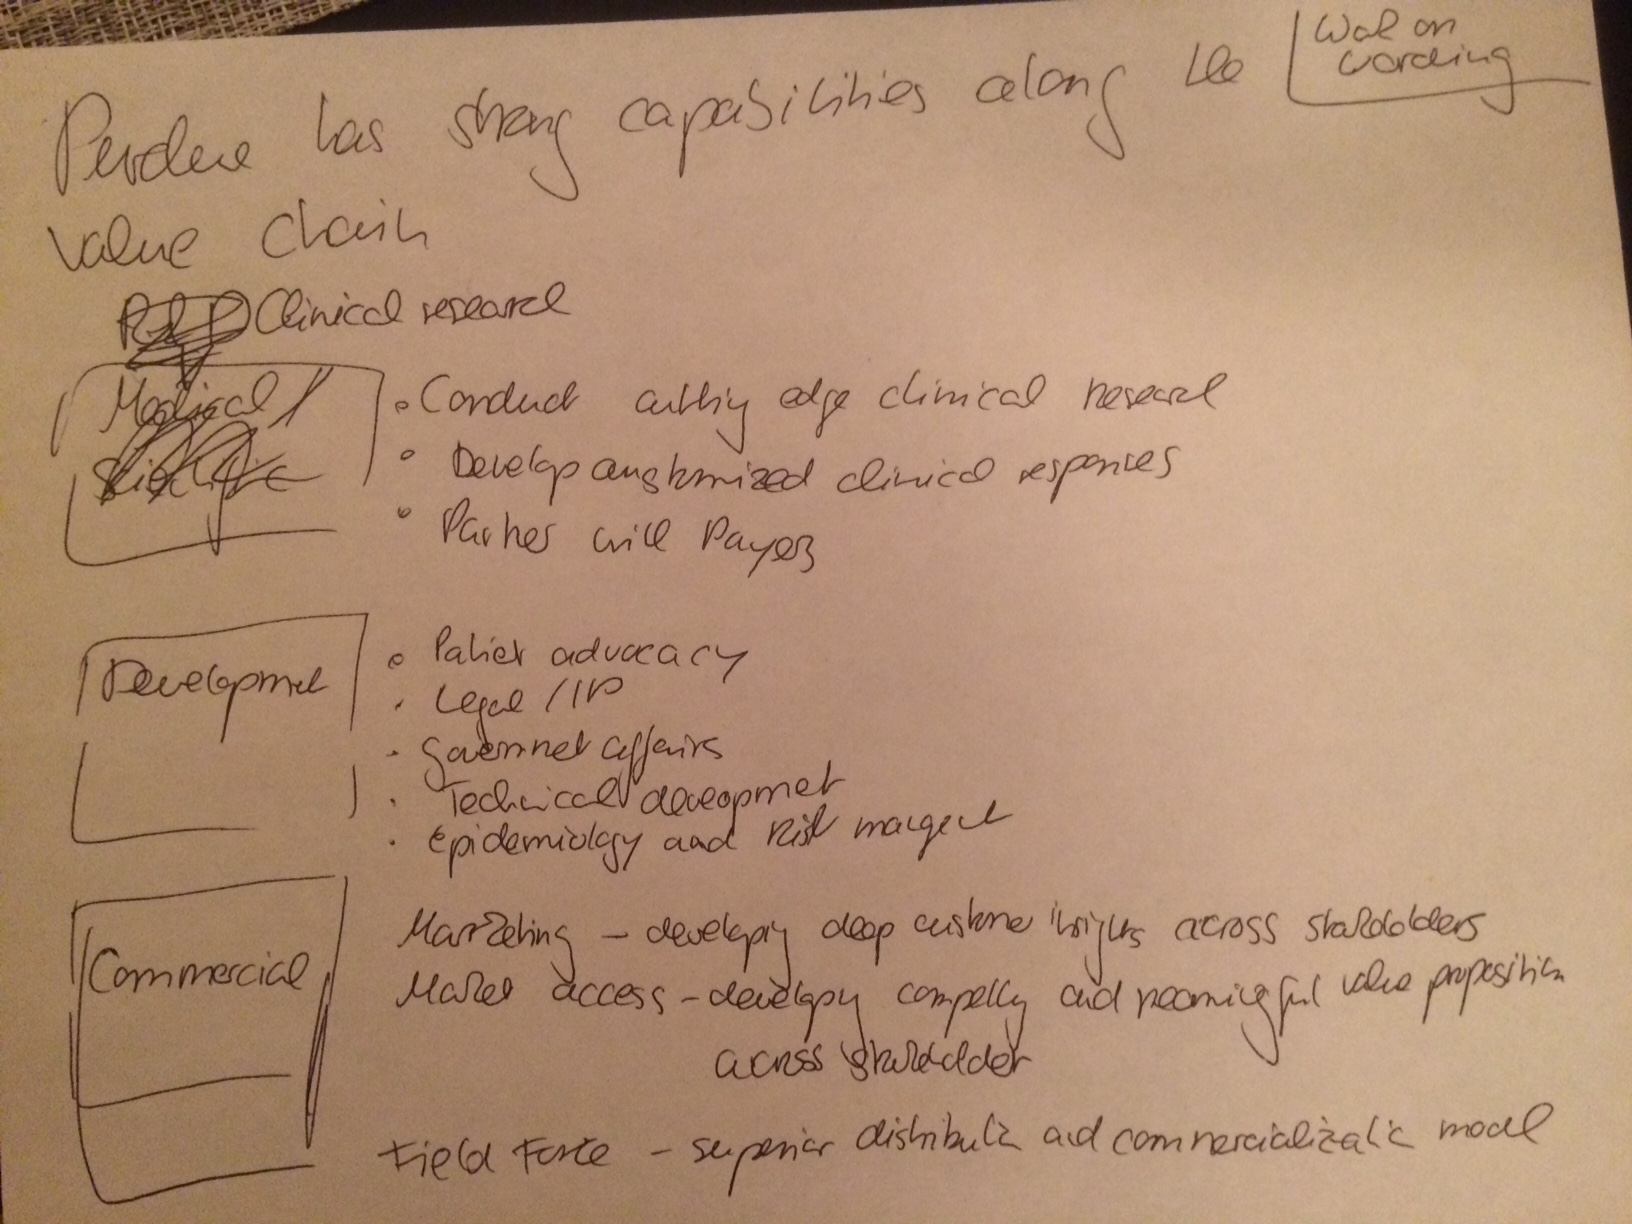 Work on
wording
Purdue has strong capabilities along the
value chain
Clinical research
Medical /
Scientific
• Conduct cutting edge clinical research
• Develop customized clinical responses
• Partner with Payers
Development
• Patient advocacy
• Legal / IP
• Government affairs
• Technical development
• Epidemiology and Risk
Commercial
Marketing – developing deep customer insights across stakeholders
Market access – developing compelling and meaningful value proposition
across stakeholder
Field Force – superior distribution and commercialization model